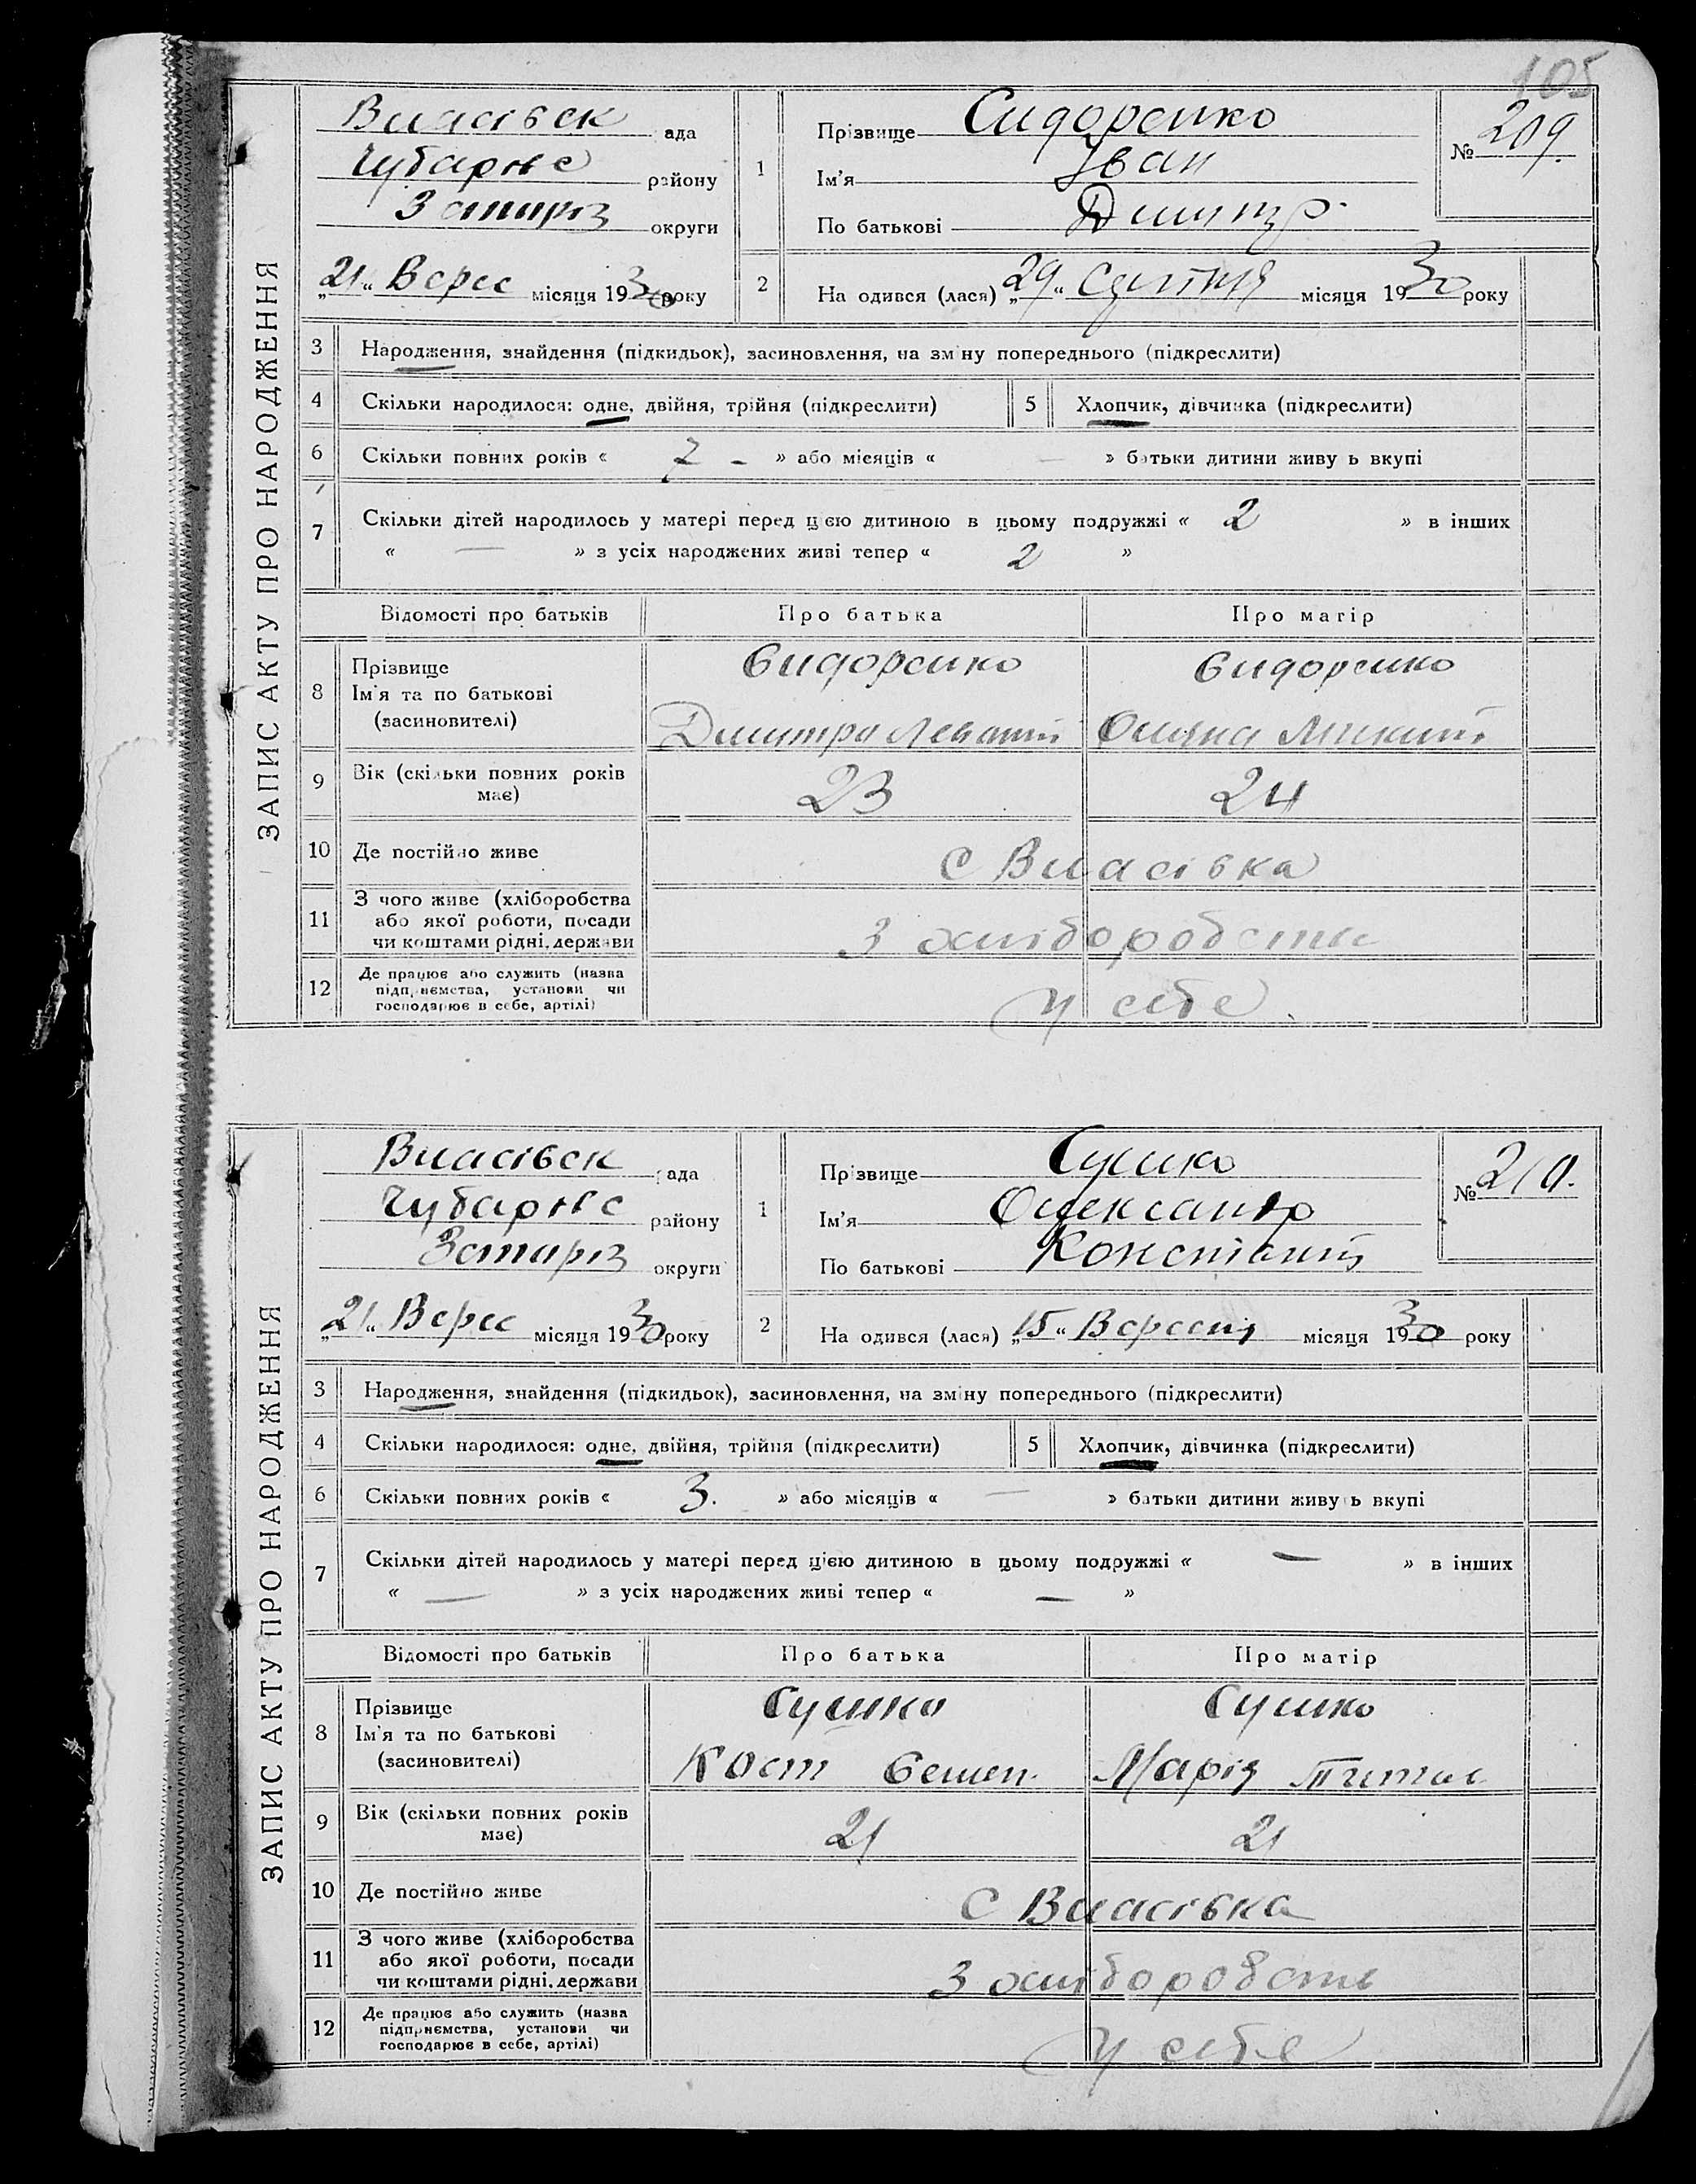 105
ЗАПИС АКТУ ПРО НАРОДЖЕННЯ
Власівск рада
Чубарівс району
Запоріз округи
„21“ Верес місяця 1930 року
1 Прізвище Сидоренко
Ім'я Іван
По батькові Дмитр.
№ 209.
2 На одився (лася) „29“ Серпня місяця 1930 року
3 Народження, знайдення (підкидьок), засиновлення, на зміну попереднього (підкреслити)
4 Скільки народилося: одне, двійня, трійня (підкреслити) 5 Хлопчик, дівчинка (підкреслити)
6 Скільки повних років « 7 - » або місяців « — » батьки дитини живуть вкупі
7 Скільки дітей народилось у матері перед цією дитиною в цьому подружжі « 2 » в інших
« — » з усіх народжених живі тепер « 2 »
Відомості про батьків Про батька Про матір
8 Прізвище Сидоренко Сидоренко
Ім'я та по батькові
(засиновителі) Дмитро
9 Вік (скільки повних років має) 23 24
10 Де постійно живе с Власівка
11 З чого живе (хліборобства
або якої роботи, посади
чи коштами рідні, держави З хліборобств
12 Де працює або служить (назва
підприємства, установи чи
господарює в себе, артілі) у себе
ЗАПИС АКТУ ПРО НАРОДЖЕННЯ
Власівск рада
Чубарівс району
Запоріз округи
„21“ Верес місяця 1930 року
1 Прізвище Сушко
Ім'я Олександр
По батькові Констант
№ 210.
2 На одився (лася) „15“ Вересня місяця 1930 року
3 Народження, знайдення (підкидьок), засиновлення, на зміну попереднього (підкреслити)
4 Скільки народилося: одне, двійня, трійня (підкреслити) 5 Хлопчик, дівчинка (підкреслити)
6 Скільки повних років « 3. » або місяців « — » батьки дитини живуть вкупі
7 Скільки дітей народилось у матері перед цією дитиною в цьому подружжі « — » в інших
« — » з усіх народжених живі тепер « — »
Відомості про батьків Про батька Про матір
8 Прізвище Сушко Сушко
Ім'я та по батькові
(засиновителі) Кост Семен. Марія
9 Вік (скільки повних років має) 21 21
10 Де постійно живе с Власівка
11 З чого живе (хліборобства
або якої роботи, посади
чи коштами рідні, держави З хліборобств
12 Де працює або служить (назва
підприємства, установи чи
господарює в себе, артілі) у себе